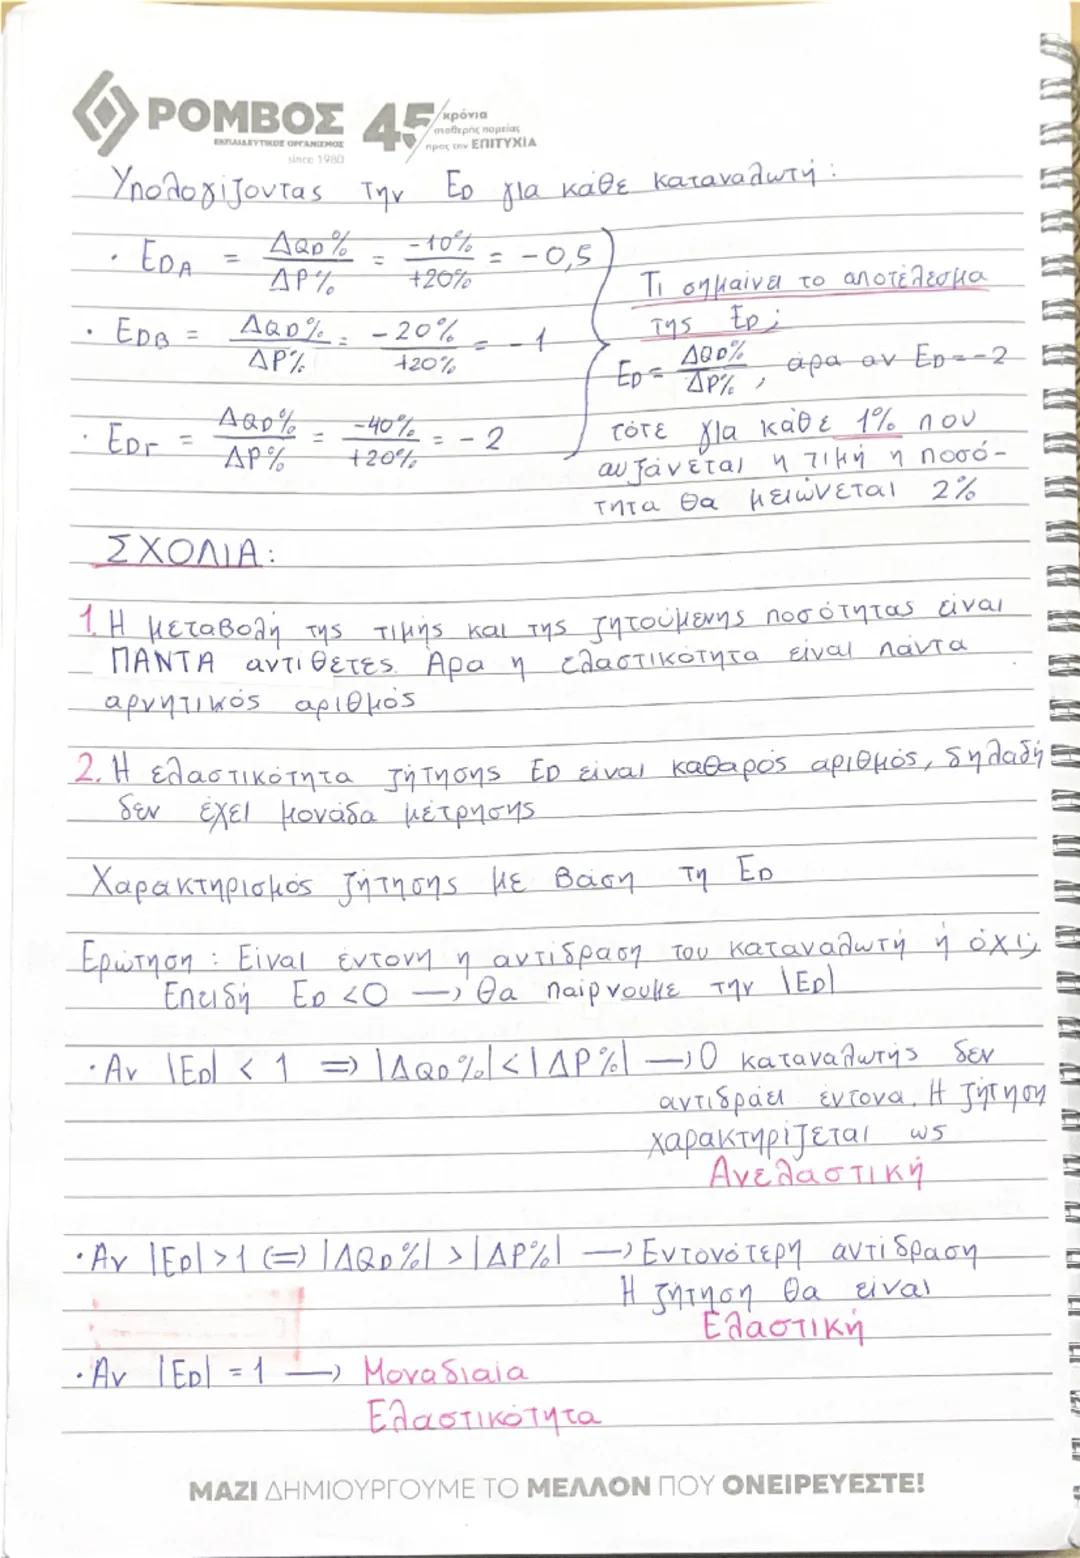 ΡΟΜΒΟΣ
ΕΚΠΑΙΔΕΥΤΙΚΟΣ ΟΡΓΑΝΙΣΜΟΣ
since 1980
45 χρόνια
σταθερής πορείας
προς την ΕΠΙΤΥΧΙΑ
Υπολογίζοντας την ED για κάθε καταναλωτή:
· EDA = ΔQD% / ΔP% = -10% / +20% = -0,5
· EDB = ΔQD% / ΔP% = -20% / +20% = -1
· EDΓ = ΔQD% / ΔP% = -40% / +20% = -2
Τι σημαίνει το αποτέλεσμα
της ED;
ED = ΔQD% / ΔP%, άρα αν ED=-2
τότε για κάθε 1% που
αυξάνεται η τιμή η ποσό-
τητα θα μειώνεται 2%
ΣΧΟΛΙΑ:
1. Η μεταβολή της τιμής και της ζητούμενης ποσότητας είναι
ΠΑΝΤΑ αντίθετες. Άρα η ελαστικότητα είναι πάντα
αρνητικός αριθμός
2. Η ελαστικότητα ζήτησης ED είναι καθαρός αριθμός, δηλαδή
δεν έχει μονάδα μέτρησης
Χαρακτηρισμός ζήτησης με βάση τη ED
Ερώτηση: Είναι έντονη η αντίδραση του καταναλωτή ή όχι;
Επειδή ED <0 → θα παίρνουμε την |ED|
· Αν |ED| < 1 ⇒ |ΔQD%| < |ΔP%| → Ο καταναλωτής δεν
αντιδράει έντονα. Η ζήτηση
χαρακτηρίζεται ως
Ανελαστική
· Αν |ED| > 1 (=) |ΔQD%| > |ΔP%| → Εντονότερη αντίδραση
Η ζήτηση θα είναι
Ελαστική
· Αν |ED| = 1 → Μοναδιαία
Ελαστικότητα
ΜΑΖΙ ΔΗΜΙΟΥΡΓΟΥΜΕ ΤΟ ΜΕΛΛΟΝ ΠΟΥ ΟΝΕΙΡΕΥΕΣΤΕ!